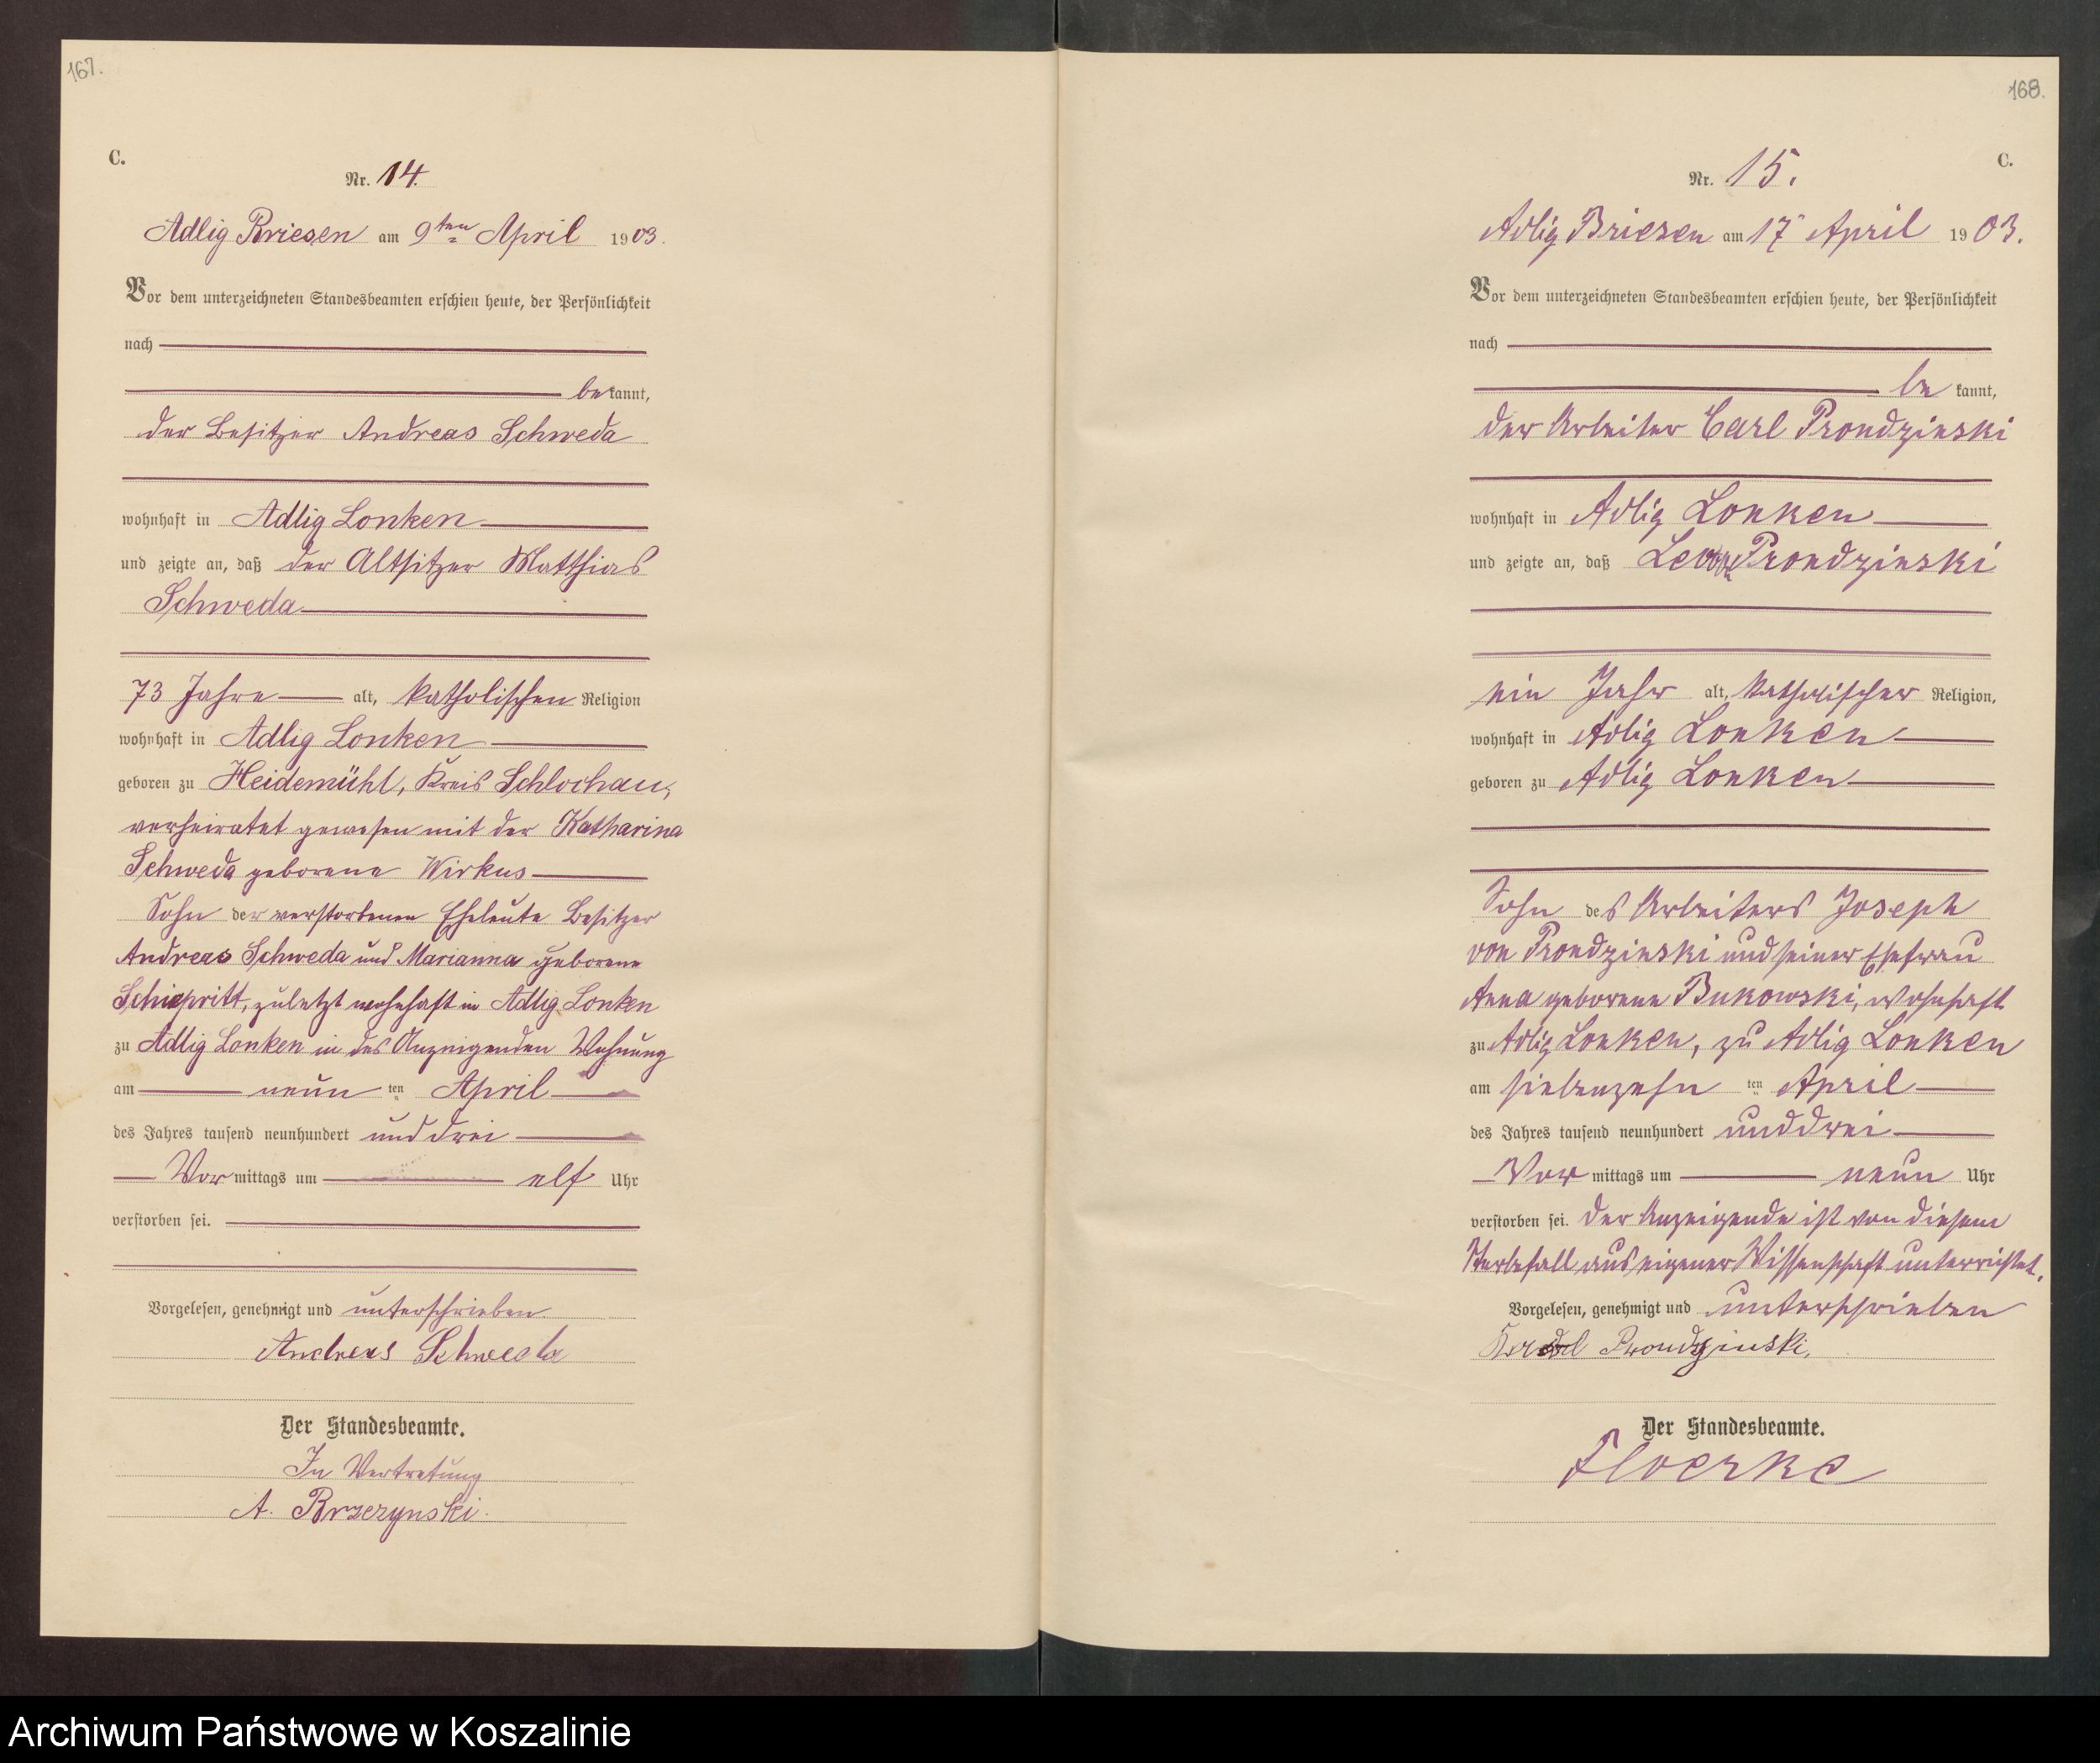 167.
C.
Nr. 14.
Adlig Briesen am 9ten April 1903.
Vor dem unterzeichneten Standesbeamten erschien heute, der Persönlichkeit
nach
bekannt,
der Besitzer Andreas Schweda
wohnhaft in Adlig Lonken
und zeigte an, daß der Altsitzer Matthias
Schweda
73 Jahre alt, katholischen Religion
wohnhaft in Adlig Lonken
geboren zu Heidemühl, Kreis Schlochau,
verheiratet gewesen mit der Katharina
Schweda geborene Wirkus
Sohn der verstorbenen Eheleute Besitzer
Andreas Schweda und Marianna geborene
zuletzt wohnhaft in Adlig Lonken
zu Adlig Lonken in des Anzeigenden Wohnung
am neun ten April
des Jahres tausend neunhundert und drei
Vor mittags um elf Uhr
verstorben sei.
Vorgelesen, genehmigt und unterschrieben
Andreas Schweda
Der Standesbeamte.
In Vertretung
A. Brzezynski.
168.
C.
Nr. 15.
Adlig Briesen am 17 April 1903.
Vor dem unterzeichneten Standesbeamten erschien heute, der Persönlichkeit
nach
be kannt,
der Arbeiter Carl Prondzinski
wohnhaft in Adlig Lonken
und zeigte an, daß Prondzinski
ein Jahr alt, katholischer Religion,
wohnhaft in Adlig Lonken
geboren zu Adlig Lonken
Sohn des Arbeiters Joseph
von Prondzinski und seiner Ehefrau
Anna geborene Bukowski, wohnhaft
zu Adlig Lonken, zu Adlig Lonken
am siebenzehn ten April
des Jahres tausend neunhundert und drei
Vor mittags um neun Uhr
verstorben sei. Der Anzeigende ist von diesem
Sterbefall aus eigener Wissenschaft unterrichtet.
Vorgelesen, genehmigt und unterschrieben
Prondzinski,
Der Standesbeamte.
Floerke
Archiwum Państwowe w Koszalinie